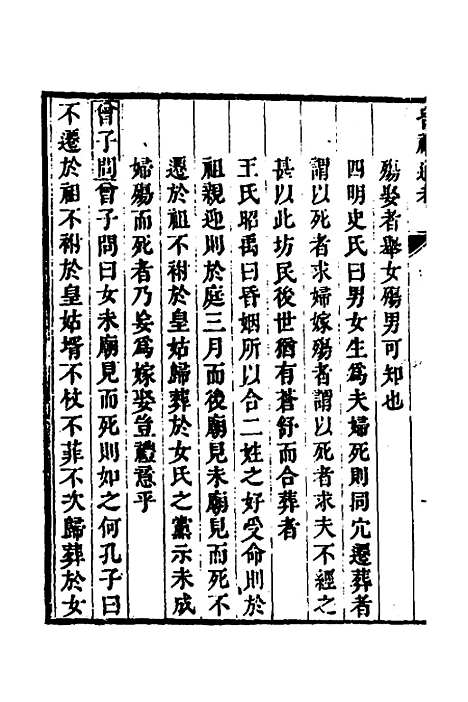 昏禮通考
殤娶者舉女殤男可知也
四明史氏曰男女生爲夫婦死則同穴遷葬者
謂以死者求婦嫁殤者謂以死者求夫不經之
甚以此坊民後世猶有蒼舒而合葬者
王氏昭禹曰昏姻所以合二姓之好受命則於
祖親迎則於庭三月而後廟見未廟見而死不
遷於祖不祔於皇姑歸葬於女氏之黨示未成
婦殤而死者乃妄爲嫁娶豈禮意乎
曾子問曾子問曰女未廟見而死則如之何孔子曰
不遷於祖不祔於皇姑壻不杖不菲不次歸葬於女